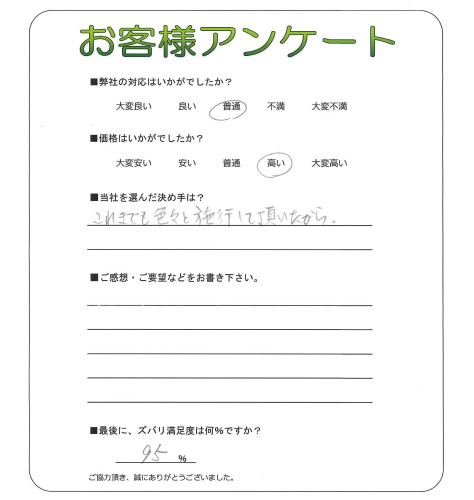 お客様アンケート
■弊社の対応はいかがでしたか？
大変良い 良い 普通 不満 大変不満
■価格はいかがでしたか？
大変安い 安い 普通 高い 大変高い
■当社を選んだ決め手は？
これまでも色々と施行して頂いたから。
■ご感想・ご要望などをお書き下さい。
■最後に、ズバリ満足度は何％ですか？
95 ％
ご協力頂き、誠にありがとうございました。